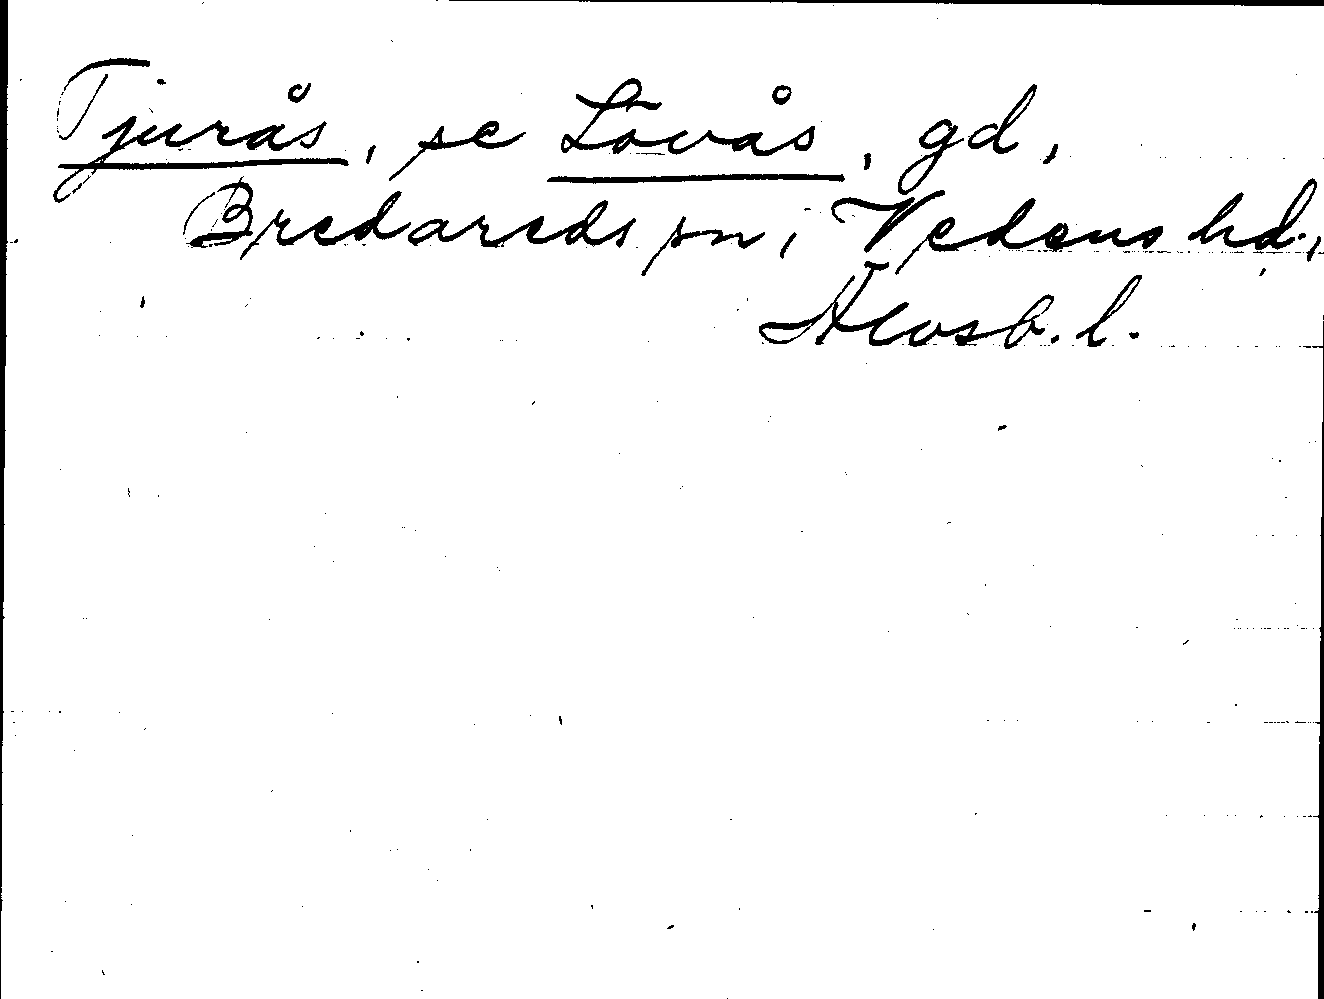 Tjurås, se Lövås, gd,
Bredareds sn, Vedens hd.,
Älvsb. l.